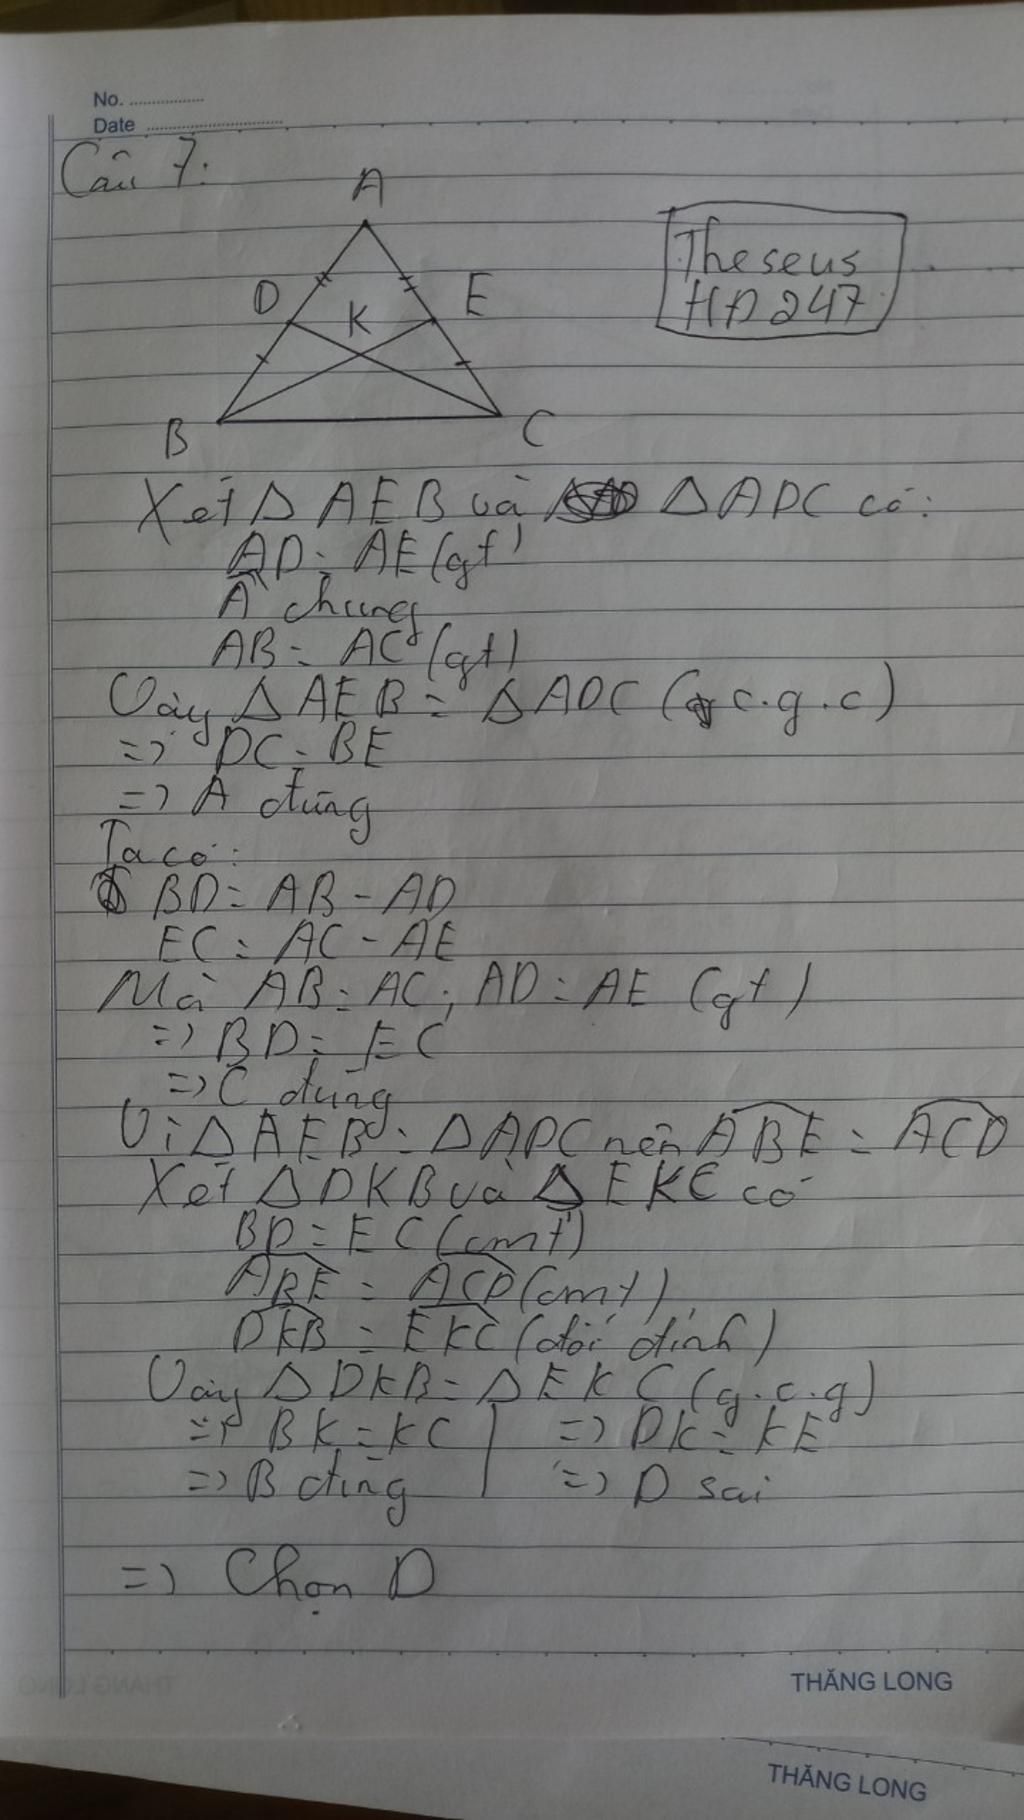 No. ................
Date ..............................
Câu 7:
A
D
E
K
B
C
Theseus
HD 247
Xét Δ AEB và Δ ADC có:
AD = AE (gt)
 chung
AB = AC (gt)
Vậy Δ AEB = Δ ADC (c.g.c)
=> DC = BE
=> A đúng
Ta có:
BD = AB - AD
EC = AC - AE
Mà AB = AC; AD = AE (gt)
=> BD = EC
=> C đúng
Vì Δ AEB = Δ ADC nên ABE = ACD
Xét Δ DKB và Δ EKC có
BD = EC (cmt)
ABE = ACD (cmt)
DKB = EKC (đối đỉnh)
Vậy Δ DKB = Δ EKC (g.c.g)
=> BK = KC | => DK = KE
=> B đúng | => D sai
=> Chọn D
THĂNG LONG
THĂNG LONG